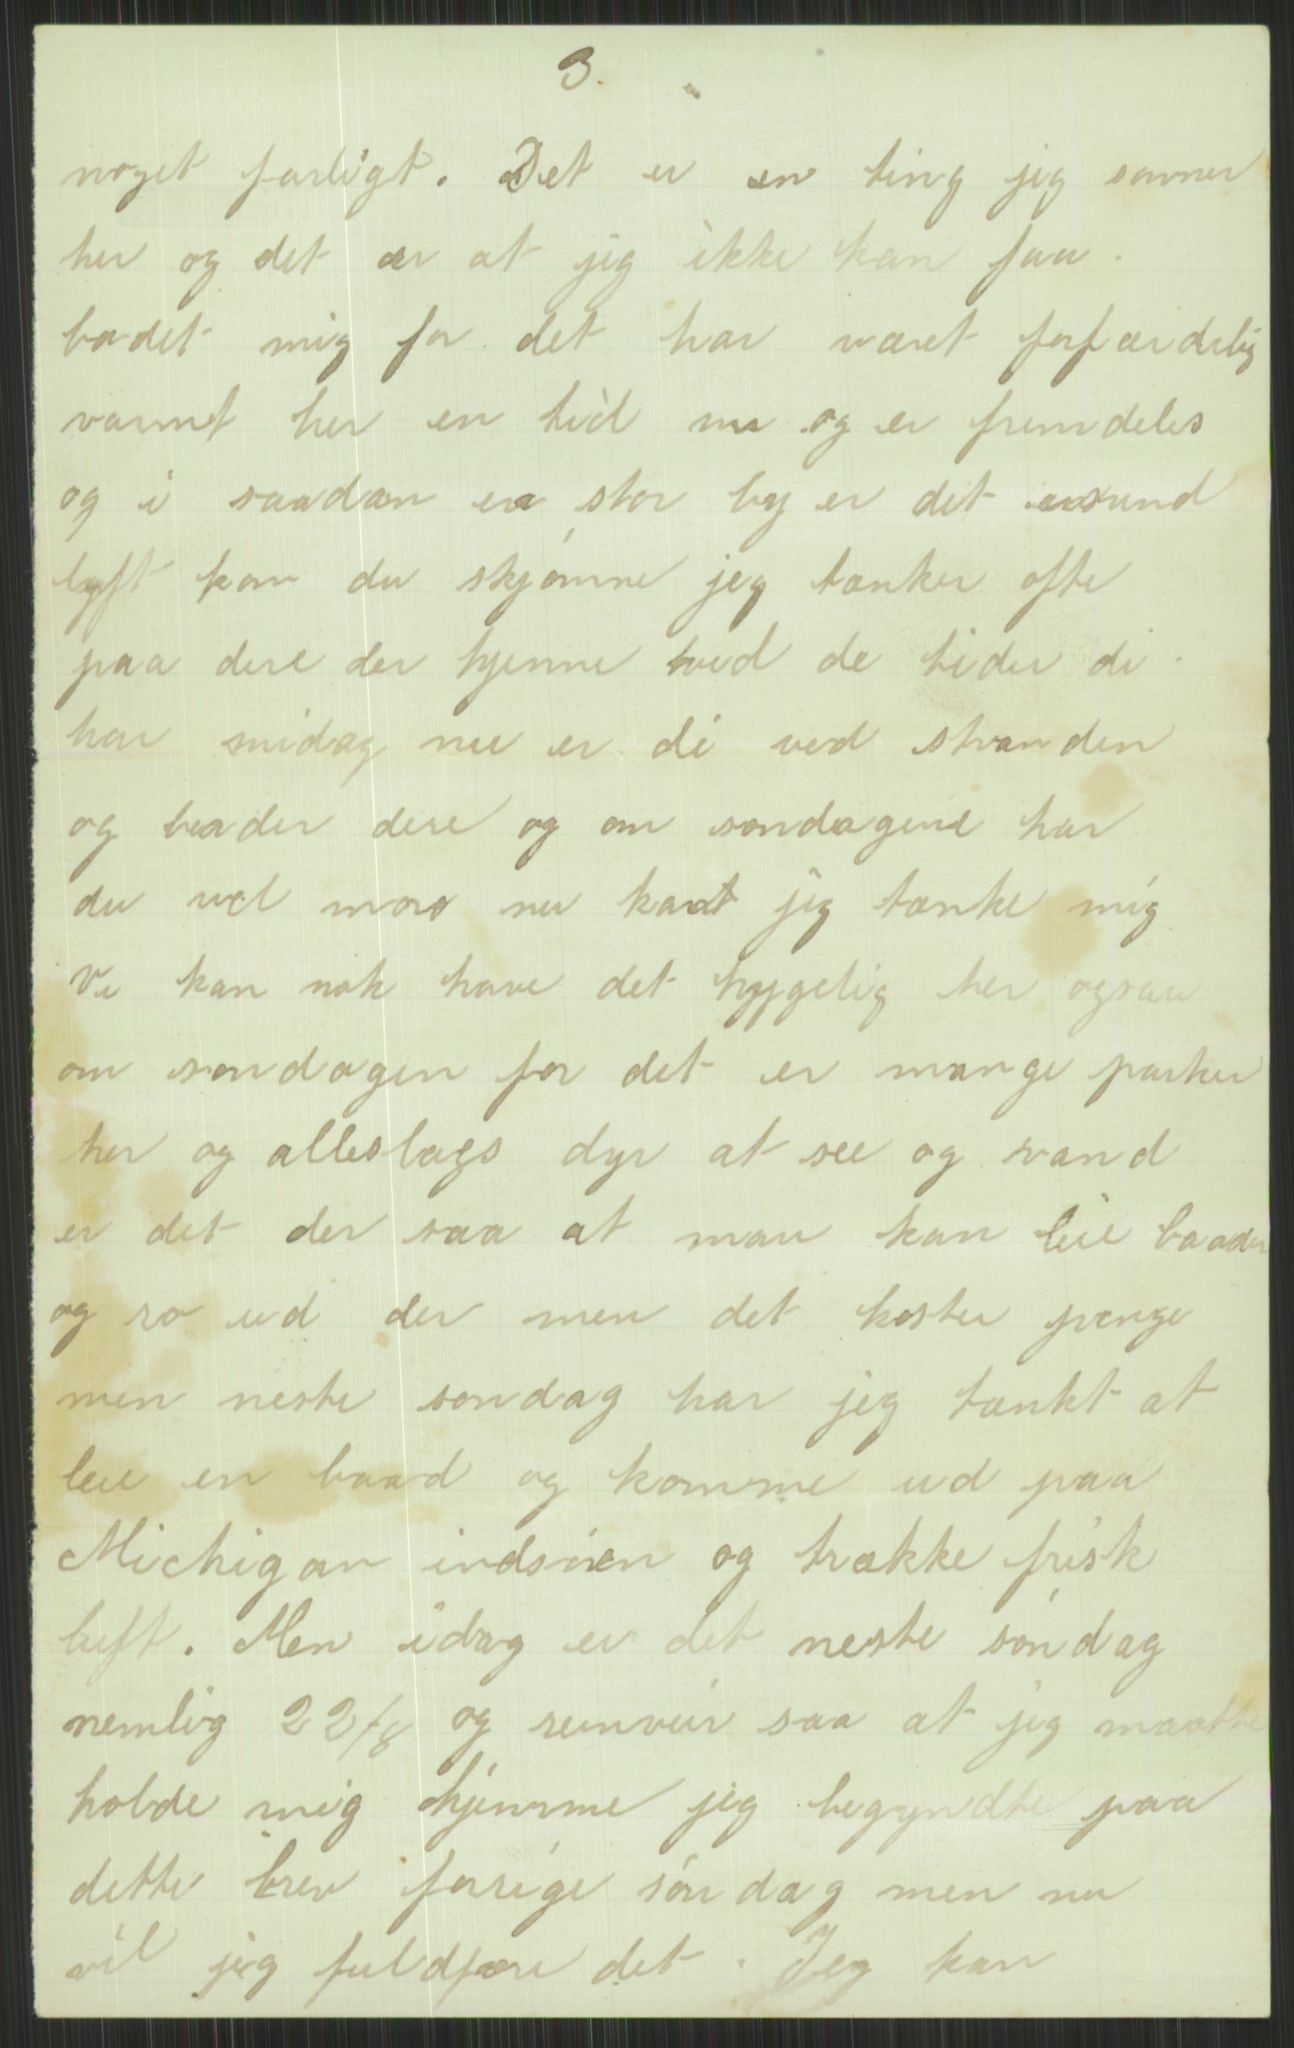 3.
noget farligt. Det er en ting jeg savner
her og det er at jeg ikke kan faa
badet mig for det har været forfærdelig
varmt her en tid nu og er fremdeles
og i saadan en stor by er det usund
lyft kan du skjønne jeg tænker ofte
paa dere der hjemme ved de tider di
har midag nu er di ved stranden
og bader dere og om søndagene har
du vel moro nu kant jeg tænke mig
Vi kan nok have det hygelig her ogsaa
om søndagen for det er mange parker
her og alleslags dyr at see og vand
er det der saa at man kan leie baader
og ro ud der men det koster penge
men neste søndag har jeg tænkt at
leie en baad og komme ud paa
Michigan indsøen og trække frisk
luft. Men idag er det neste søndag
nemlig 22/8 og reinveir saa at jeg maatte
holde mig hjemme jeg begyndte paa
dette brev forrige søndag men nu
vil jeg fuldføre det. Jeg kan